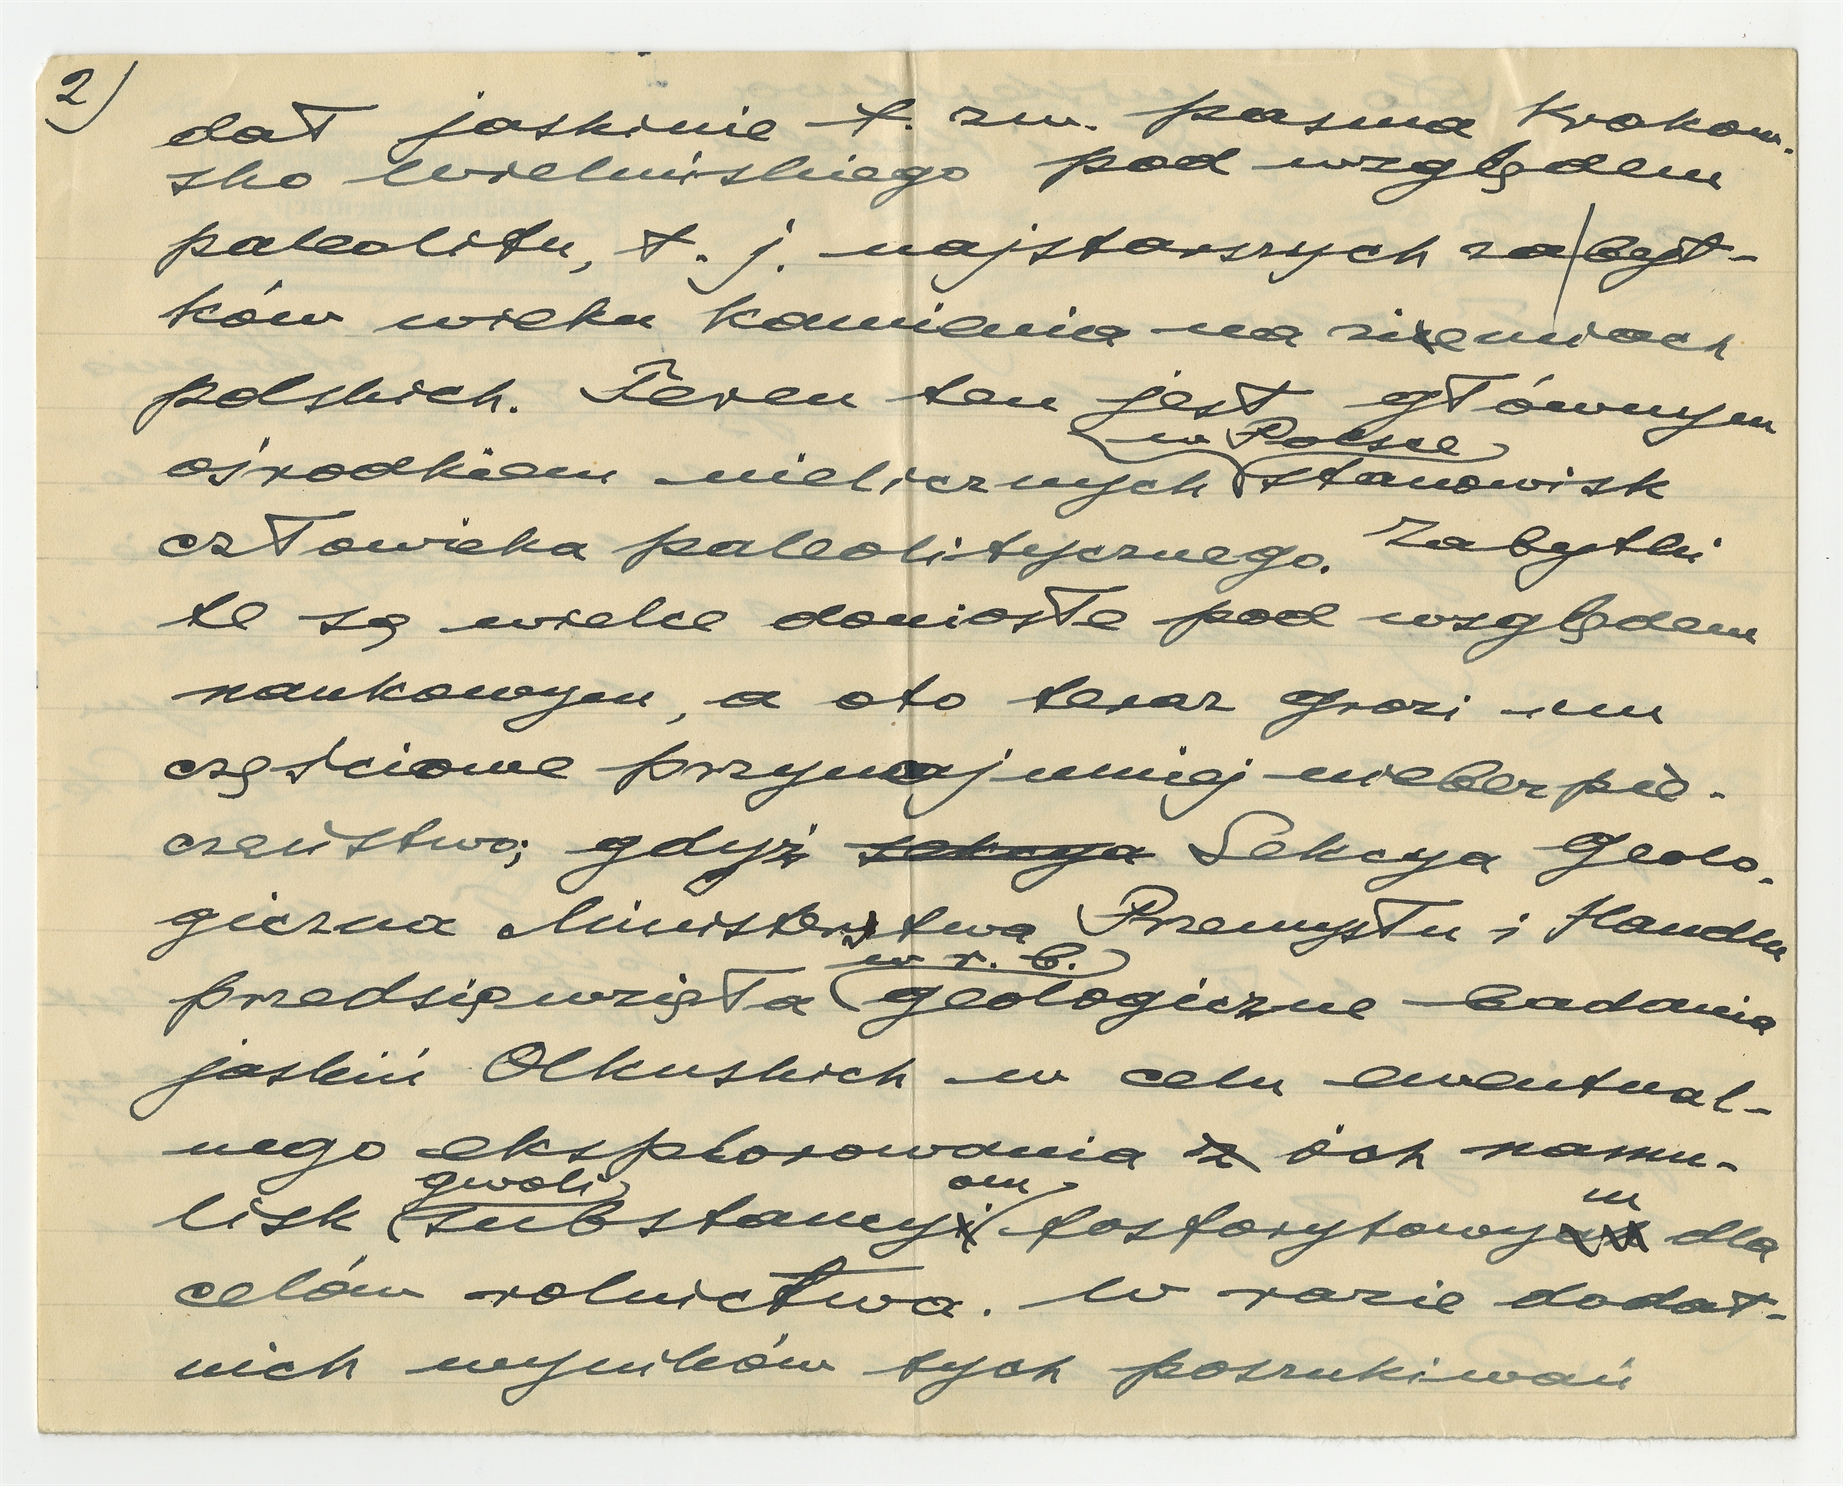 2)
dał jaskinie t. zw. pasma Krakow-
sko Wieluńskiego pod względem
paleolitu, t. j. najstarszych zabyt-
ków wieku kamienia na ziemiach
polskich. Teren ten jest głównym
w Polsce
ośrodkiem nielicznych stanowisk
człowieka paleolitycznego. Zabytki
te są wielce doniosłe pod względem
naukowym, a oto teraz grozi im
częściowe przynajmniej niebezpie-
czeństwo; gdyż sekcya Sekcya Geolo-
giczna Ministerstwa Przemysłu i Handlu
w r. b.
przedsięwzięła geologiczne badania
jaskiń Olkuskich w celu ewentual-
nego eksplorowania z ich namu-
gwoli om m
lisk substancyi fosforytowy dla
celów rolnictwa. W razie dodat-
nich wyników tych poszukiwań